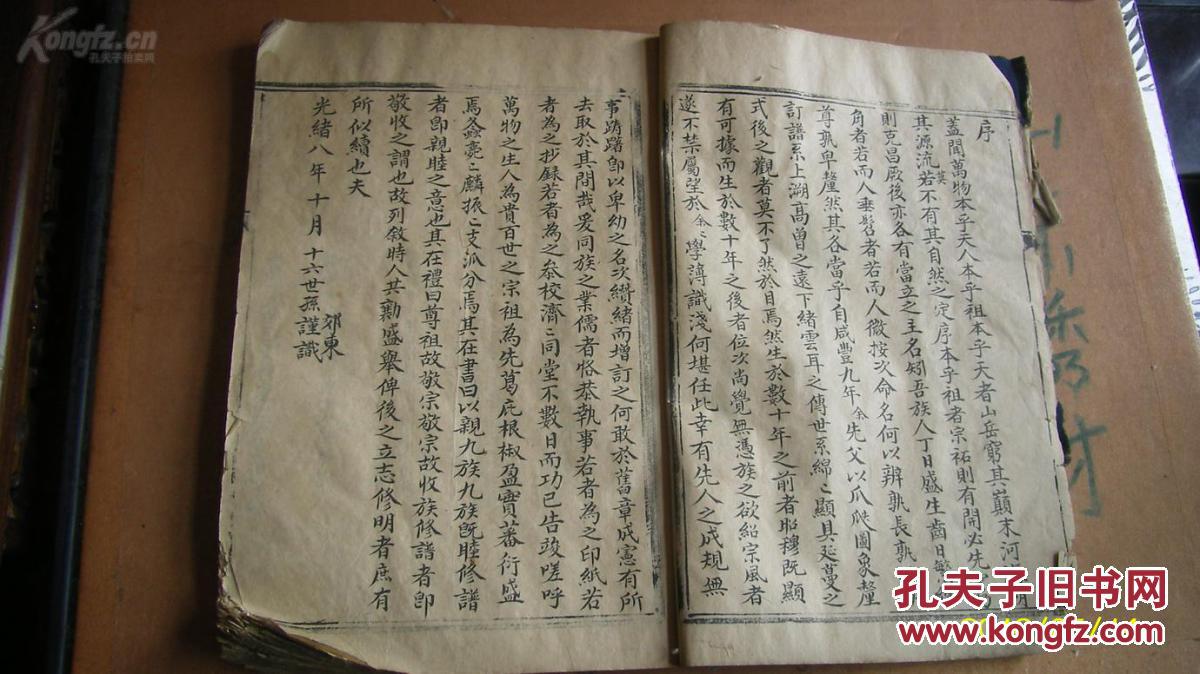 序
蓋聞萬物本乎天人本乎祖本乎天者山岳窮其巔末河
其源流若不有其自然之定序本乎祖者宗祏則有開必先
莫
則克昌厥後亦各有當立之主名矧吾族人丁日盛生齒日繁
角者若而人垂髫者若而人微按次命名何以辨孰長孰
尊孰卑釐然其各當乎自咸豐九年余先父以爪爬圖象釐
訂譜系上溯高曾之遠下緒雲耳之傳世系綿〻顯具延蔓之
式後之觀者莫不了然於目焉然生於數十年之前者昭穆既顯
有可據而生於數十年之後者位次尚覺無憑族之欲紹宗風者
遂不禁屬望於余〻學溥識淺何堪任此幸有先人之成規無
事躊躇即以卑幼之名次纘緒而增訂之何敢於舊章成憲有所
去取於其間哉爰同族之業儒者恪恭執事若者為之印紙若
者為之抄録若者為之叅校濟〻同堂不數日而功已告竣嗟呼
萬物之生人為貴百世之宗祖為先葛庇根椒盈實蕃衍盛
焉螽薨〻麟振〻支派分焉其在書曰以親九族九族既睦修譜
者卽親睦之意也其在禮曰尊祖故敬宗敬宗故收族修譜者卽
敬收之謂也故列敘時人共勷盛舉俾後之立志修明者庶有
所似續也夫
光緒八年十月十六世孫郊東謹識
Kongfz.cn
孔夫子旧书网
孔夫子旧书网
www.kongfz.com